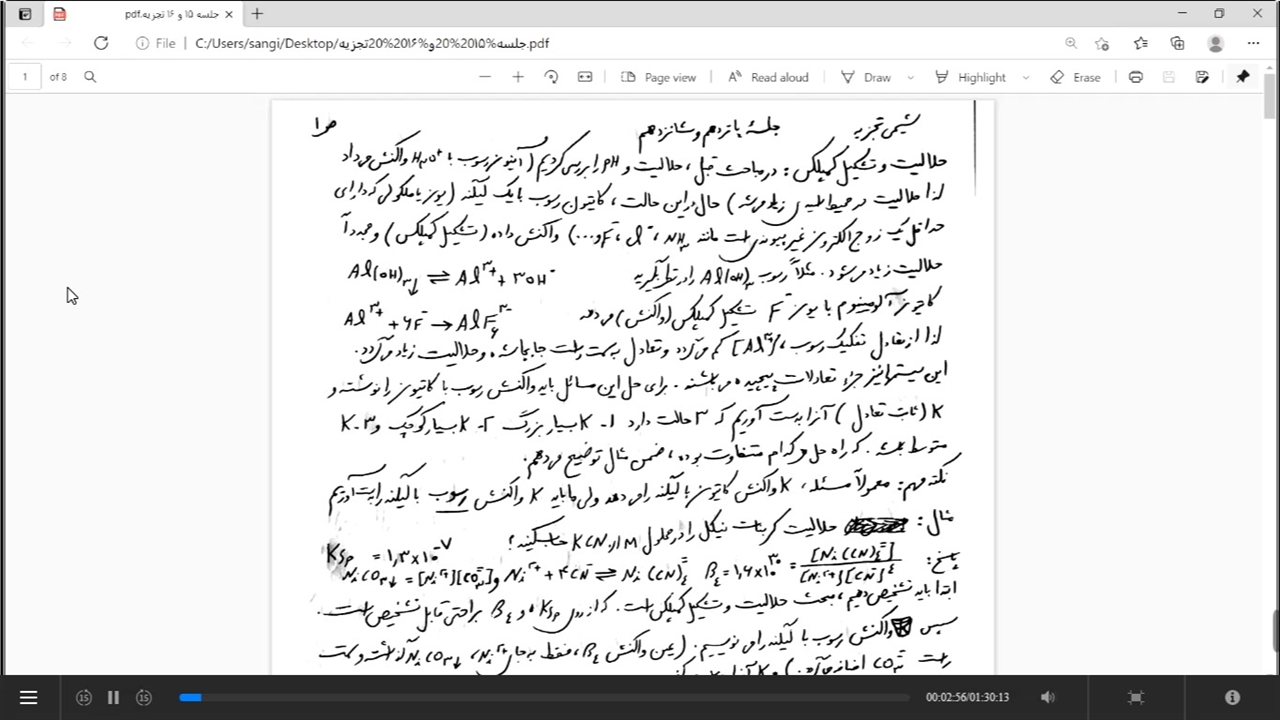 جلسه ۱۵ و ۱۶ تجزیه.pdf
File C:/Users/sangi/Desktop/جلسه%20۱۵%20و%20۱۶%20تجزیه.pdf
1 of 8 Page view Read aloud Draw Highlight Erase
شیمی تجزیه جلسهٔ پانزدهم و شانزدهم ص۱
حلالیت و تشکیل کمپلکس: در مباحث قبل، حلالیت و PH را بررسی کردیم (آنیون رسوب با H₃O⁺ واکنش می‌داد
لذا حلالیت در محیط اسیدی زیاد می‌شد) حال در این حالت، کاتیون رسوب با یک لیگند (یون یا ملکولی که دارای
حداقل یک زوج الکترون غیر پیوندی است مانند NH₃، Cl⁻، F⁻ و...) واکنش داده (تشکیل کمپلکس) و مجدداً
حلالیت زیاد می‌شود. مثلاً رسوب Al(OH)₃ را در نظر بگیرید Al(OH)₃↓ ⇌ Al³⁺ + ۳OH⁻
کاتیون آلومینیوم با یون F⁻ تشکیل کمپلکس (واکنش) می‌دهد Al³⁺ + ۶F⁻ → AlF₆³⁻
لذا از تعادل تفکیک رسوب، [Al³⁺] کم می‌گردد و تعادل به سمت راست جابجا شده و حلالیت زیاد می‌گردد.
این سیستم‌ها نیز جزء تعادلات پیچیده می‌باشند. برای حل این مسائل باید واکنش رسوب با کاتیون را نوشته و
K (ثابت تعادل) آنرا بدست آوریم که ۳ حالت دارد ۱- K بسیار بزرگ ۲- K بسیار کوچک و ۳- K
متوسط باشد. که راه حل هر کدام متفاوت بوده، ضمن مثال توضیح می‌دهم.
نکته مهم: معمولاً مسئله، K واکنش کاتیون با لیگند را می‌دهد ولی ما باید K واکنش رسوب با لیگند را بدست آوریم
مثال: حلالیت کربنات نیکل را در محلول ۱M از KCN حساب کنید؟ Ksp = ۱٫۳×۱۰⁻⁷
پاسخ: NiCO₃↓ = [Ni²⁺][CO₃²⁻] و Ni²⁺ + ۴CN⁻ ⇌ Ni(CN)₄²⁻ β₄ = ۱٫۶×۱۰³⁰ = [Ni(CN)₄²⁻] / [Ni²⁺][CN⁻]⁴
ابتدا باید تشخیص دهیم، مبحث حلالیت و تشکیل کمپلکس است. که از روی Ksp و β₄ براحتی قابل تشخیص است.
سپس واکنش رسوب با لیگند را می‌نویسیم. (یعنی واکنش β₄، فقط به جای Ni²⁺، NiCO₃↓ گذاشته و سمت
راست CO₃²⁻ اضافه می‌گردد.) و K آنرا
00:02:56/01:30:13